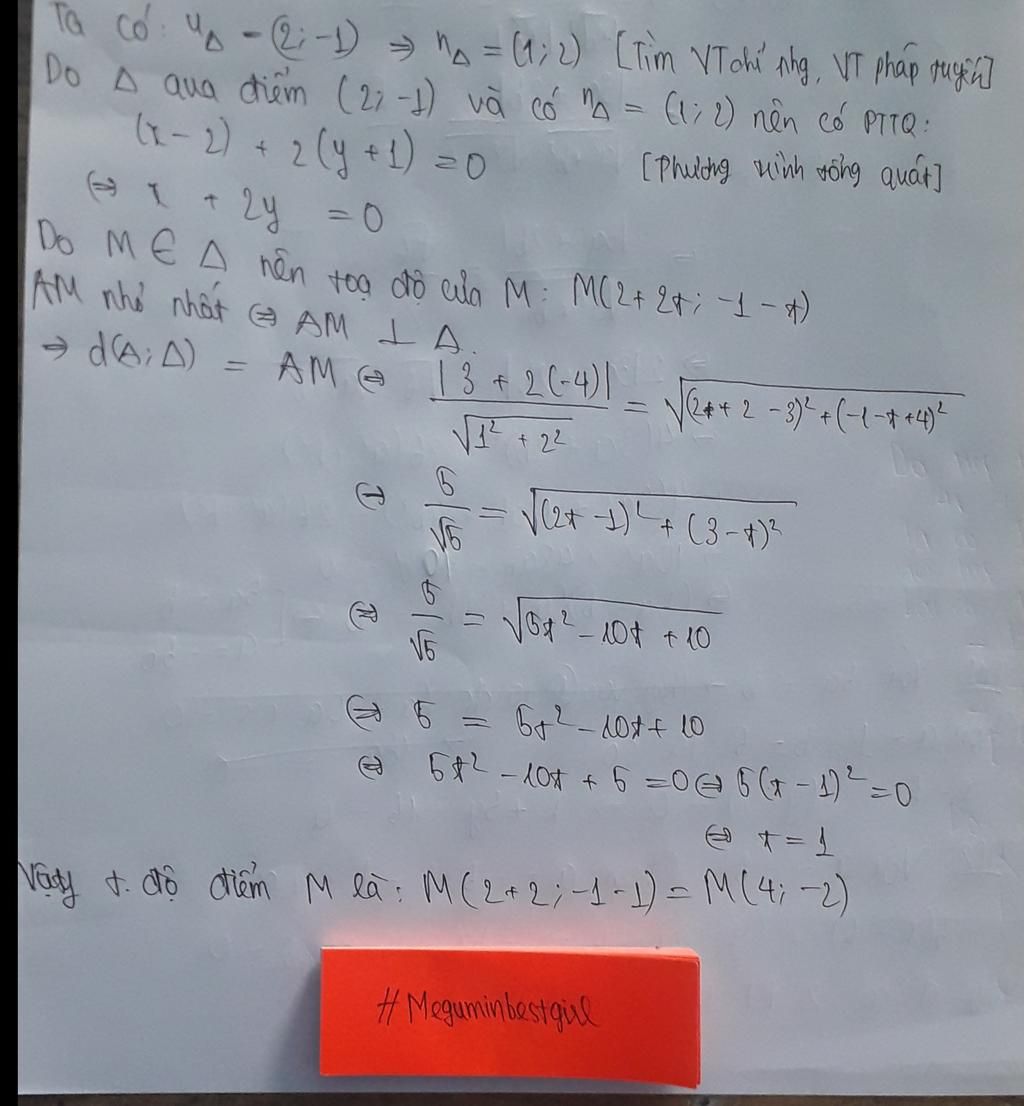 Ta có: u_Δ = (2; -1) ⇒ n_Δ = (1; 2) [Tìm VT chỉ phg, VT pháp tuyến]
Do Δ qua điểm (2; -1) và có n_Δ = (1; 2) nên có PTTQ:
(x - 2) + 2(y + 1) = 0 [Phương trình tổng quát]
⇔ x + 2y = 0
Do M ∈ Δ nên toạ độ của M: M(2 + 2t; -1 - t)
AM nhỏ nhất ⇔ AM ⊥ Δ.
⇒ d(A; Δ) = AM ⇔ |3 + 2(-4)| / √(1² + 2²) = √((2t + 2 - 3)² + (-1 - t + 4)²)
⇔ 5/√5 = √((2t - 1)² + (3 - t)²)
⇔ 5/√5 = √(5t² - 10t + 10)
⇔ 5 = 5t² - 10t + 10
⇔ 5t² - 10t + 5 = 0 ⇔ 5(t - 1)² = 0
⇔ t = 1
Vậy t. độ điểm M là: M(2 + 2; -1 - 1) = M(4; -2)
#Meguminbestgirl